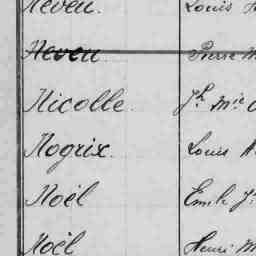 Neven. Louis
Neven Pierre M
Nicolle Jh Mie
Nogrix Louis
Noël Emile J
Noël Henri M